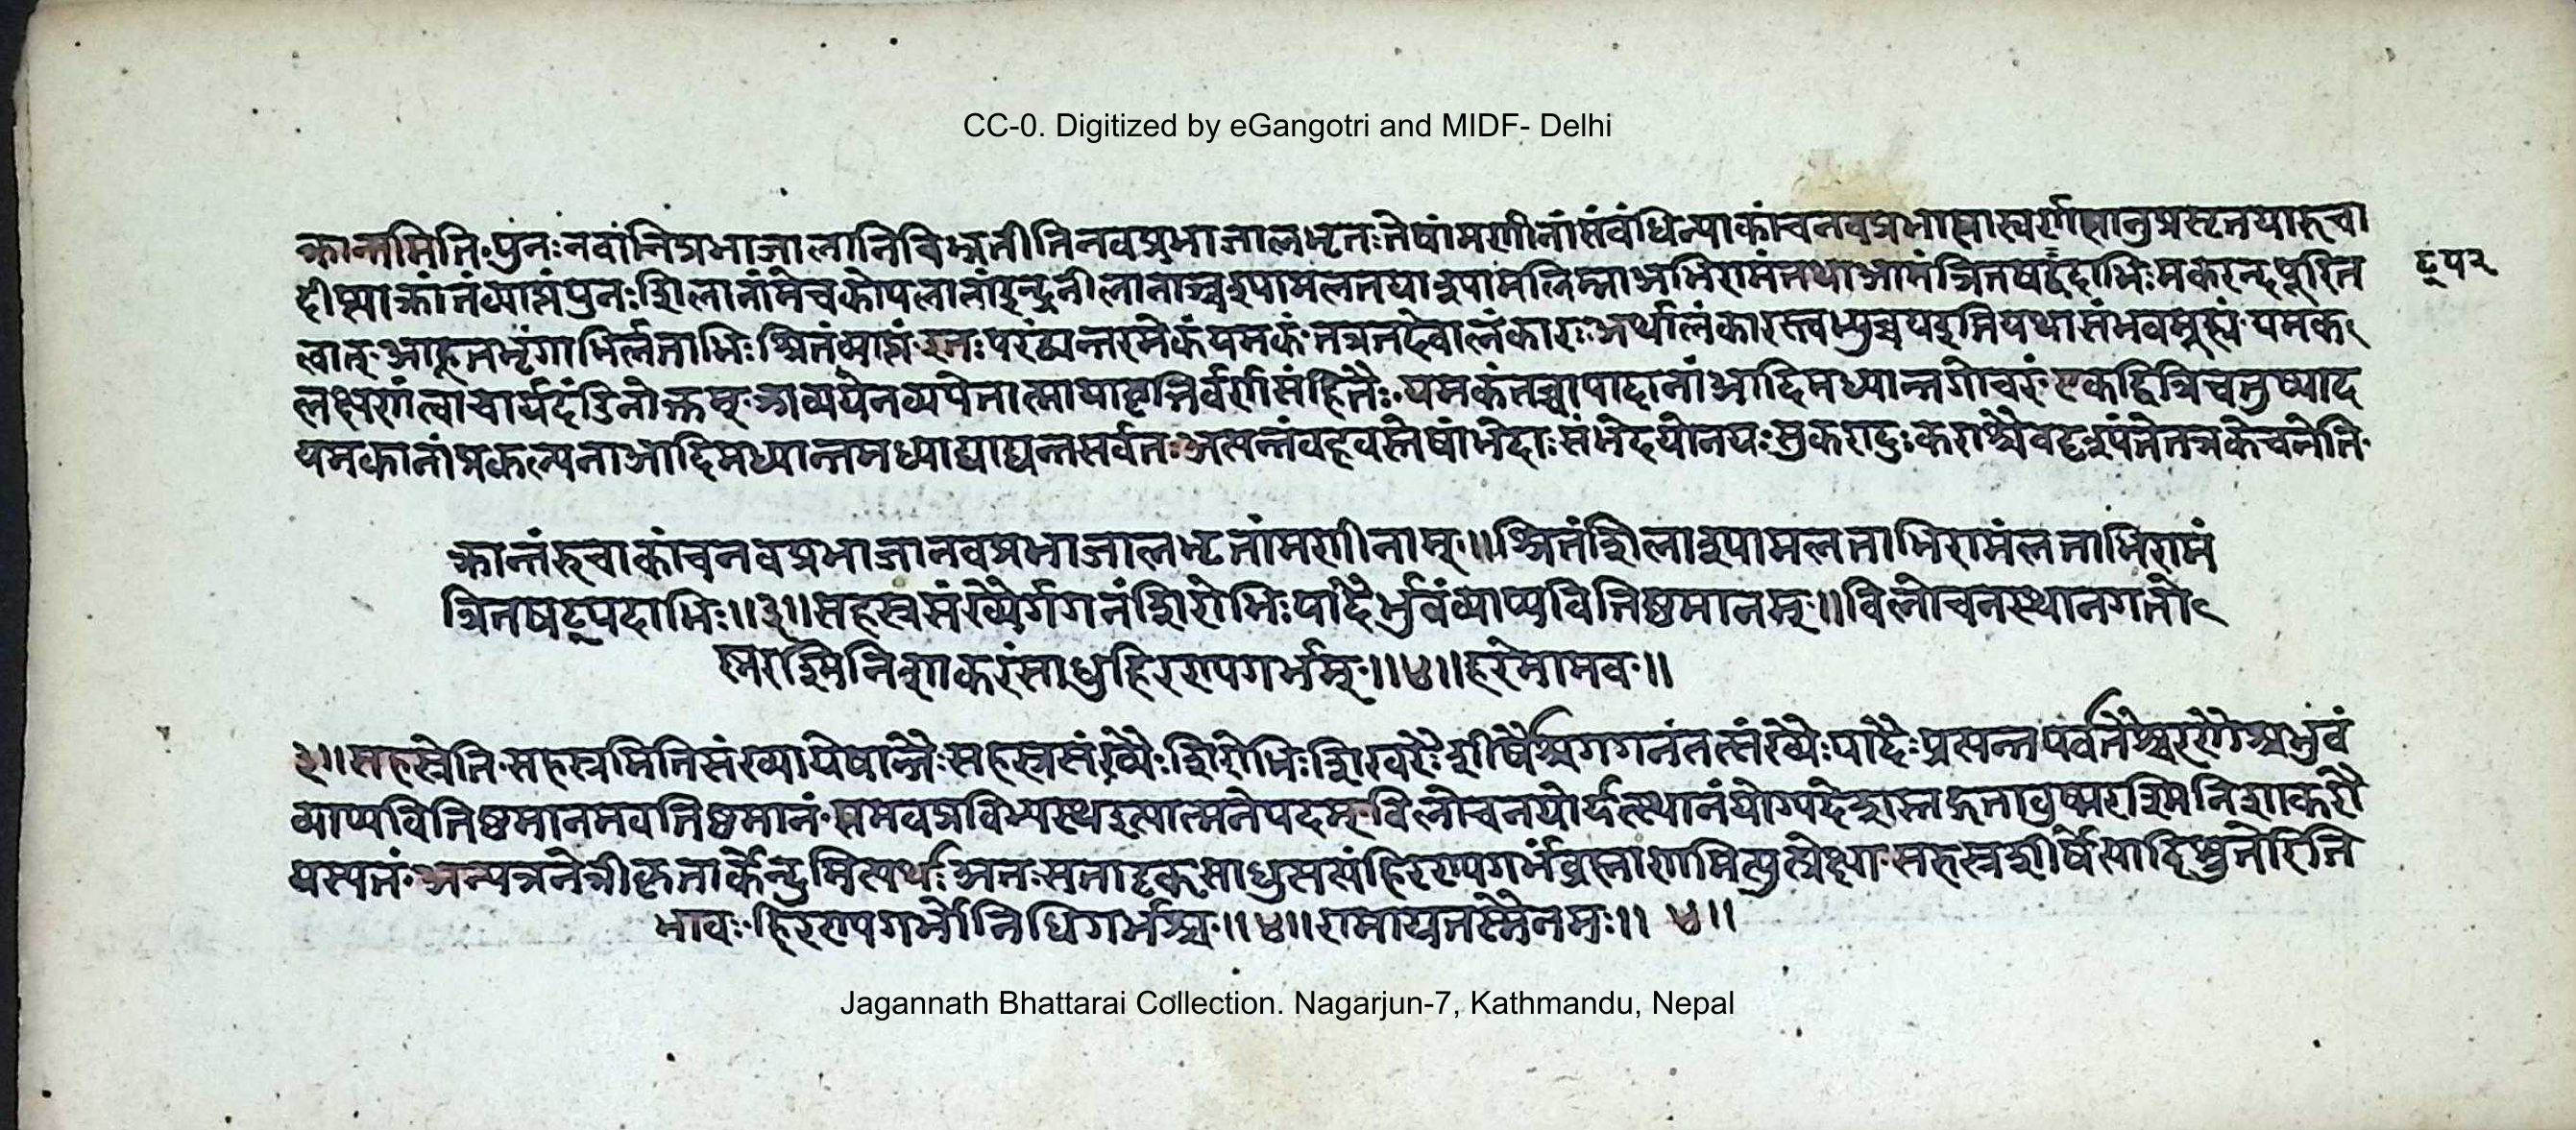 CC-0. Digitized by eGangotri and MIDF- Delhi
क्रान्तमिति पुनः नवानि प्रभाजालानि बिभ्रतीति नवप्रभाजालभृतः तेषां मणीनां संबंधिन्या कांचनवप्रभासा स्वर्णसानुप्रसृतया रुचा
दीप्त्या क्रांतं व्याप्तं पुनः शिलानां मेचकोपलानां इन्द्रनीलानां श्यामलतया श्यामलिम्ना अभिरामं तथा आमंत्रितषट्पदाभिः मकरन्दपूरित
ट्प२
त्वात् आहूतभृंगाभिर्लताभिः श्रितं व्याप्तं इतः परं द्व्यन्तरमेकं यमकं तत्र तदेवालंकारः अर्थालंकारस्त्वभ्युच्चय इति यथासंभवमूह्यं यमक
लक्षणं त्वाचार्यदंडिनोक्तम् अव्यपेतव्यपेतात्मा या वृत्तिर्वर्णसंहितेः यमकं तच्च पादानां आदिमध्यान्तगोचरं एकद्वित्रिचतुष्पाद
यमकानां प्रकल्पना आदिमध्यान्तमध्याद्याद्यन्तसर्वतः अत्यन्तं बहवस्तेषां भेदाः संभेदयोनयः सुकरा दुःकराश्चैव दृश्यंते तत्र केचनेति
क्रान्तं रुचा कांचनवप्रभाजा नवप्रभाजालभृतां मणीनाम् ॥ श्रितं शिलाश्यामलताभिरामं लताभिरामं
त्रितषट्पदाभिः ॥३॥ सहस्रसंख्यैर्गगनं शिरोभिः पादैर्भुवं व्याप्य वितिष्ठमानम् ॥ विलोचनस्थानगतो
ष्णरश्मिनिशाकरं साधु हिरण्यगर्भम् ॥४॥ हरे मामव ॥
३॥ सहस्रेति सहस्रमिति संख्या येषान्तैः सहस्रसंख्यैः शिरोभिः शिखरैः शीर्षैश्च गगनं तत्संख्यैः पादैः प्रत्यन्तपर्वतैश्चरणैश्च भुवं
व्याप्य वितिष्ठमानमवतिष्ठमानं समवप्रविभ्यस्थ इत्यात्मनेपदम् विलोचनयोर्यत्स्थानं योग्यदेशस्तद्गतावुष्णरश्मिनिशाकरौ
यस्य तं अन्यत्र नेत्रीकृतार्केन्दुमित्यर्थः अतः सतादृक् साधु सम्यं हिरण्यगर्भं ब्रह्माणमित्युत्प्रेक्षा सहस्रशीर्षेत्यादिश्रुतेरिति
भावः हिरण्यगर्भो निधिगर्भश्च ॥४॥ रामाय नस्मै नमः ॥ ४॥
Jagannath Bhattarai Collection. Nagarjun-7, Kathmandu, Nepal